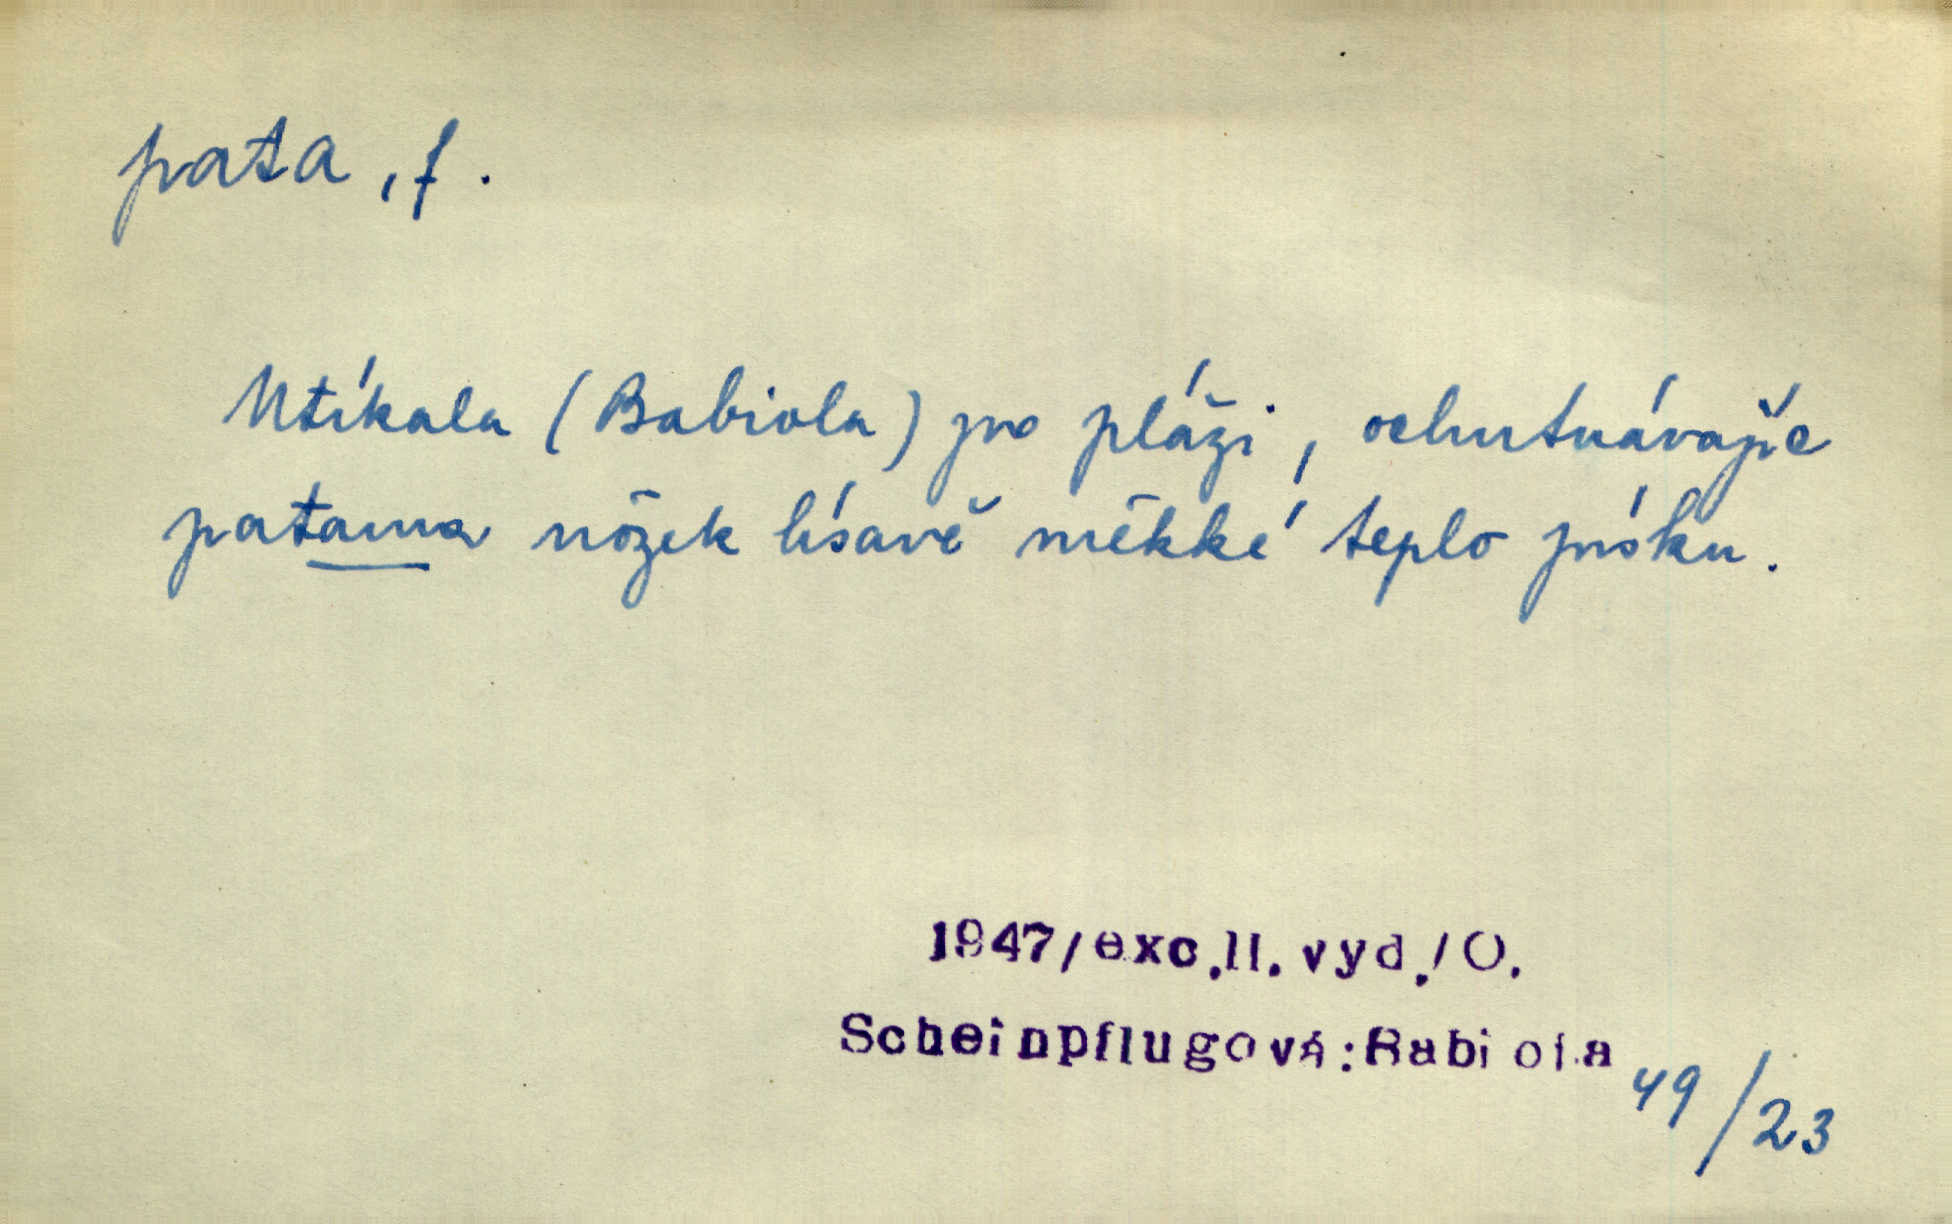 pata, f.
Utíkala (Babiola) po pláži, ochutnávajíc
patama nôžek lísavě měkké teplo písku.
1947/exc.II. vyd./O.
Scheinpflugová:Babiola
49/23